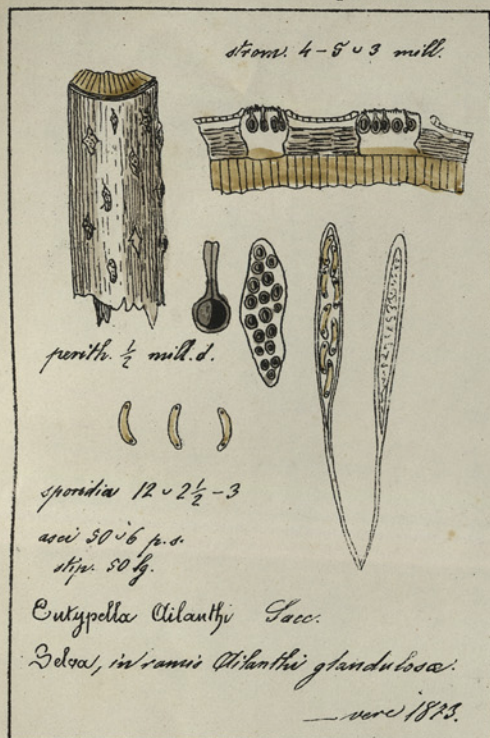 strom. 4-5 ◡ 3 mill.
perith. ½ mill. d.
sporidia 12 ◡ 2½-3
asci 50 ◡ 6 p. s.
stip. 50 lg.
Eutypella Ailanthi Sacc.
Selva, in ramis Ailanthi glandulosæ.
— vere 1873.